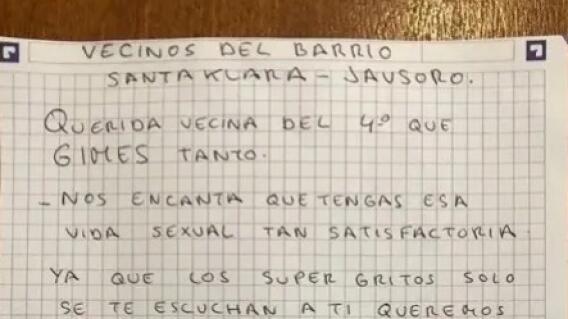 VECINOS DEL BARRIO
SANTA KLARA - JAUSORO.
QUERIDA VECINA DEL 4º QUE
GIMES TANTO.
- NOS ENCANTA QUE TENGAS ESA
VIDA SEXUAL TAN SATISFACTORIA
YA QUE LOS SUPER GRITOS SOLO
SE TE ESCUCHAN A TI QUEREMOS